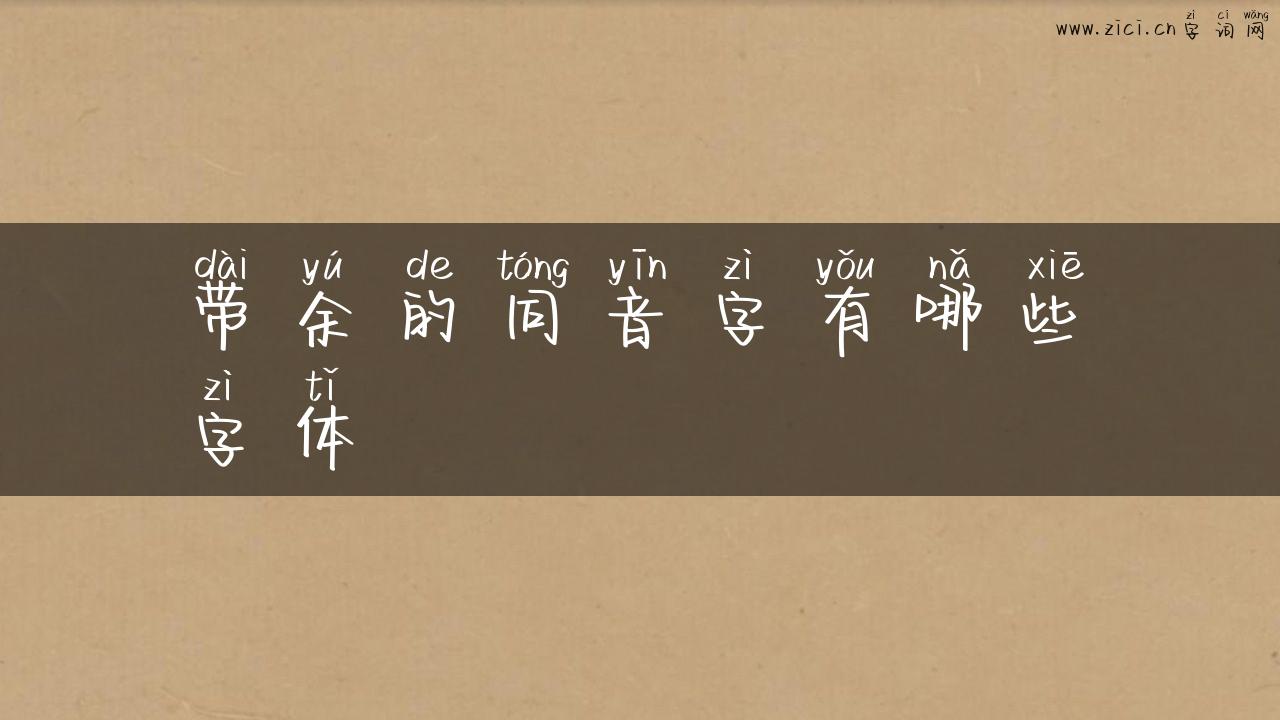 zì cí wǎng
www.zici.cn 字 词 网
dài yú de tóng yīn zì yǒu nǎ xiē
带 余 的 同 音 字 有 哪 些
zì tǐ
字 体